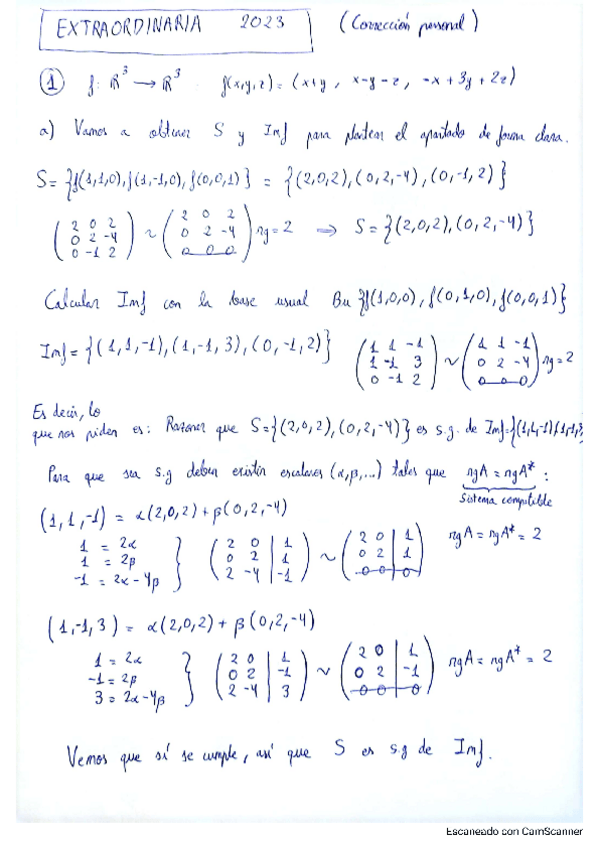 EXTRAORDINARIA 2023 (Corrección personal)
① f: ℝ³ → ℝ³ f(x,y,z) = (x+y, x-y-z, -x+3y+2z)
a) Vamos a obtener S y Imf para plantear el apartado de forma clara.
S = {f(1,1,0), f(1,-1,0), f(0,0,1)} = {(2,0,2), (0,2,-4), (0,-1,2)}
(2 0 2 / 0 2 -4 / 0 -1 2) ~ (2 0 2 / 0 2 -4 / 0 0 0) rg=2 ⇒ S = {(2,0,2), (0,2,-4)}
Calcular Imf con la base usual Bu {f(1,0,0), f(0,1,0), f(0,0,1)}
Imf = {(1,1,-1), (1,-1,3), (0,-1,2)} (1 1 -1 / 1 -1 3 / 0 -1 2) ~ (1 1 -1 / 0 2 -4 / 0 0 0) rg=2
Es decir, lo
que nos piden es: Razonar que S={(2,0,2),(0,2,-4)} es s.g. de Imf={(1,1,-1),(1,-1,3
Para que sea s.g deben existir escalares (α,β,...) tales que rgA = rgA* :
Sistema compatible
(1,1,-1) = α(2,0,2)+β(0,2,-4)
1 = 2α
1 = 2β
-1 = 2α-4β
(2 0 | 1 / 0 2 | 1 / 2 -4 | -1) ~ (2 0 | 1 / 0 2 | 1 / 0 0 | 0) rgA = rgA* = 2
(1,-1,3) = α(2,0,2)+β(0,2,-4)
1 = 2α
-1 = 2β
3 = 2α-4β
(2 0 | 1 / 0 2 | -1 / 2 -4 | 3) ~ (2 0 | 1 / 0 2 | -1 / 0 0 | 0) rgA = rgA* = 2
Vemos que sí se cumple, así que S es s.g de Imf.
Escaneado con CamScanner